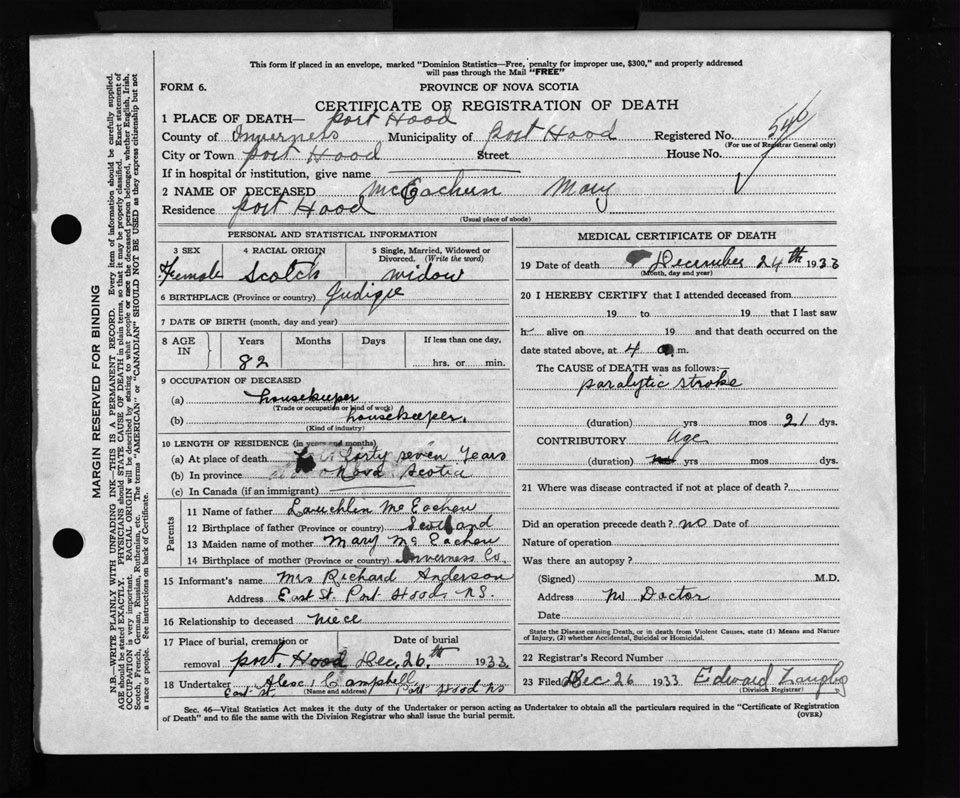 This form if placed in an envelope, marked "Dominion Statistics—Free, penalty for improper use, $300," and properly addressed
will pass through the Mail "FREE"
FORM 6.
PROVINCE OF NOVA SCOTIA
CERTIFICATE OF REGISTRATION OF DEATH
1 PLACE OF DEATH— Port Hood
County of Inverness Municipality of Port Hood Registered No. 546
(For use of Registrar General only)
City or Town Port Hood Street House No.
If in hospital or institution, give name
2 NAME OF DECEASED McEachern Mary
Residence Port Hood
(Usual place of abode)
PERSONAL AND STATISTICAL INFORMATION
3 SEX 4 RACIAL ORIGIN 5 Single, Married, Widowed or
Divorced. (Write the word)
Female Scotch Widow
6 BIRTHPLACE (Province or country) Judique
7 DATE OF BIRTH (month, day and year)
8 AGE IN Years Months Days If less than one day,
82 hrs. or min.
9 OCCUPATION OF DECEASED
(a) housekeeper
(Trade or occupation or kind of work)
(b) housekeeper.
(Kind of industry)
10 LENGTH OF RESIDENCE (in years and months)
(a) At place of death Forty seven Years
(b) In province Nova Scotia
(c) In Canada (if an immigrant)
Parents
11 Name of father Lauchlin McEachen
12 Birthplace of father (Province or country) Scotland
13 Maiden name of mother Mary McEachen
14 Birthplace of mother (Province or country) Inverness Co.
15 Informant's name Mrs Richard Anderson
Address East St. Port Hood, N.S.
16 Relationship to deceased niece
17 Place of burial, cremation or Date of burial
removal Port Hood Dec, 26th 1933
18 Undertaker Alex Campbell
East St. (Name and address) Port Hood NS
MEDICAL CERTIFICATE OF DEATH
19 Date of death December 24th 1933
(Month, day and year)
20 I HEREBY CERTIFY that I attended deceased from
19 to 19 that I last saw
h alive on 19 and that death occurred on the
date stated above, at 4 a m.
The CAUSE of DEATH was as follows:—
paralytic stroke
(duration) yrs mos 21 dys.
CONTRIBUTORY Age
(duration) yrs mos dys.
21 Where was disease contracted if not at place of death?
Did an operation precede death? no Date of
Nature of operation
Was there an autopsy?
(Signed) M.D.
Address No Doctor
Date
State the Disease causing Death, or in death from Violent Causes, state (1) Means and Nature
of Injury, (2) whether Accidental, Suicidal or Homicidal.
22 Registrar's Record Number
23 Filed Dec 26 1933 Edward
(Division Registrar)
Sec. 46—Vital Statistics Act makes it the duty of the Undertaker or person acting as Undertaker to obtain all the particulars required in the "Certificate of Registration
of Death" and to file the same with the Division Registrar who shall issue the burial permit.
(OVER)
MARGIN RESERVED FOR BINDING
N.B.—WRITE PLAINLY WITH UNFADING INK—THIS IS A PERMANENT RECORD. Every item of information should be carefully supplied.
AGE should be stated EXACTLY. PHYSICIANS should STATE CAUSE OF DEATH in plain terms, so that it may be properly classified. Exact statement of
OCCUPATION is very important. RACIAL ORIGIN will be described by stating to what people or race the deceased person belonged, whether English, Irish,
Scotch, French, German, Russian, Ruthenian, etc. The terms "AMERICAN" or "CANADIAN" SHOULD NOT BE USED as they express citizenship but not
a race or people. See instructions on back of Certificate.